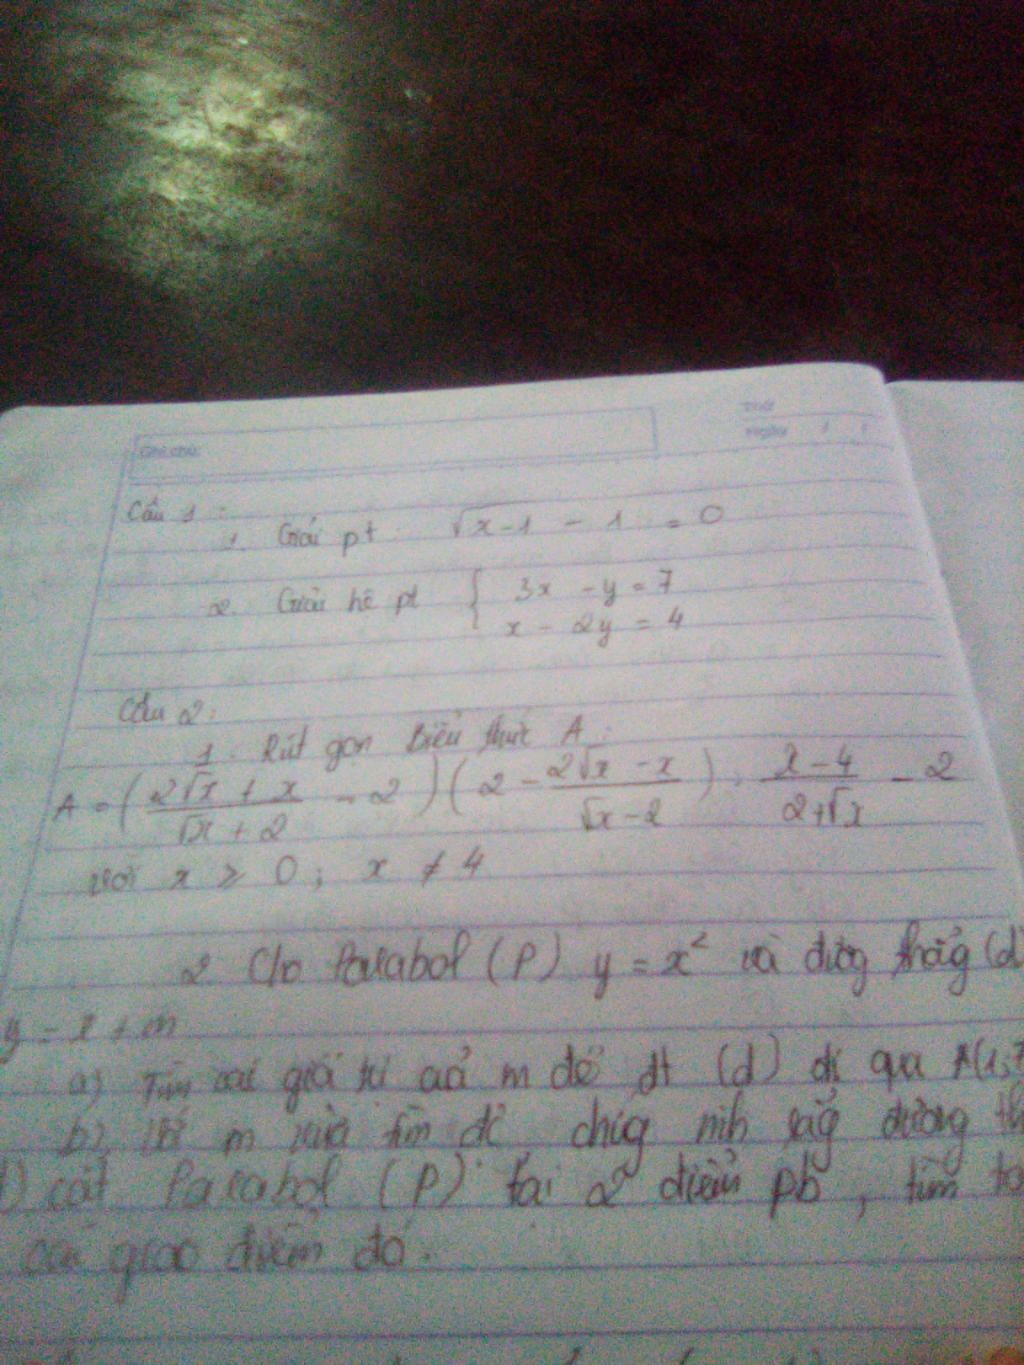 Ghi chú:
Thứ
Ngày / /
Câu 1:
1. Giải pt: √(x-1) - 1 = 0
2. Giải hê pt { 3x - y = 7
x - 2y = 4
Câu 2:
1. Rút gọn biểu thức A:
A = ( (2√x + x)/(√x + 2) - 2 ) ( 2 - (2√x - x)/(√x - 2) ) : (x-4)/(2+√x) - 2
với x ≥ 0 ; x ≠ 4
2 Cho Parabol (P) y = x² và đường thẳg (d)
y = x + m
a) Tìm giá trị m để đt (d) đi qua A(1;7
b) Với m vừa tìm chứg mih rằg đường th
cắt Parabol (P) tại 2 điểm pb, tìm to
giao điểm đó.